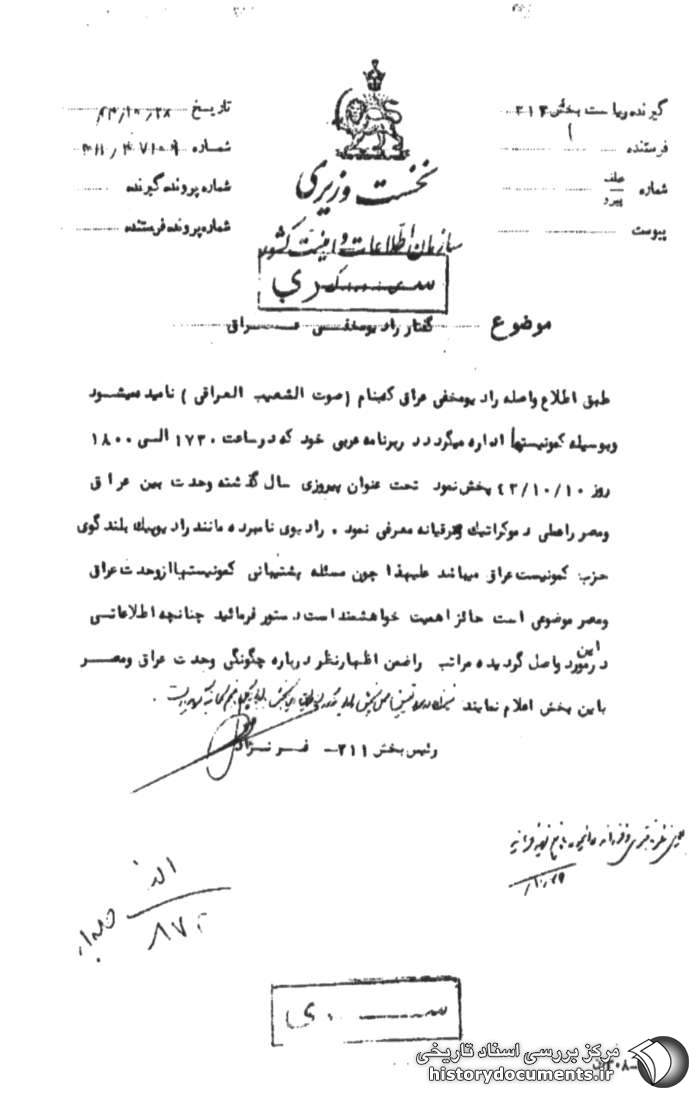 گیرنده ریاست بخش ۲۱۳
تاریخ
فرستنده
شماره
شماره عطف پیرو
شماره پرونده گیرنده
پیوست
شماره پرونده فرستنده
نخست وزیری
سازمان اطلاعات و امنیت کشور
سری
موضوع گفتار رادیو مخفی عراق
طبق اطلاع واصله رادیو مخفی عراق که بنام (صوت الشعب العراقی) نامیده میشود
وبوسیله کمونیستها اداره میگردد در برنامه عربی خود که در ساعت ۱۷۳۰ الی ۱۸۰۰
روز ۴۳/۱۰/۱۰ پخش نمود تحت عنوان پیروزی سال گذشته وحدت بین عراق
ومصر راعملی دموکراتیک و مترقیانه معرفی نمود. رادیوی نامبرده مانند رادیو پیک بلندگوی
حزب کمونیست عراق میباشد علیهذا چون مسئله پشتیبانی کمونیستها از وحدت عراق
ومصر موضوعی است حائز اهمیت خواهشمند است دستور فرمائید چنانچه اطلاعاتی
در این مورد واصل گردیده مراتب را ضمن اظهارنظر درباره چگونگی وحدت عراق ومصر
باین بخش اعلام نمایند
رئیس بخش ۲۱۱- فرنژاد
الف
سری
مرکز بررسی اسناد تاریخی
historydocuments.ir